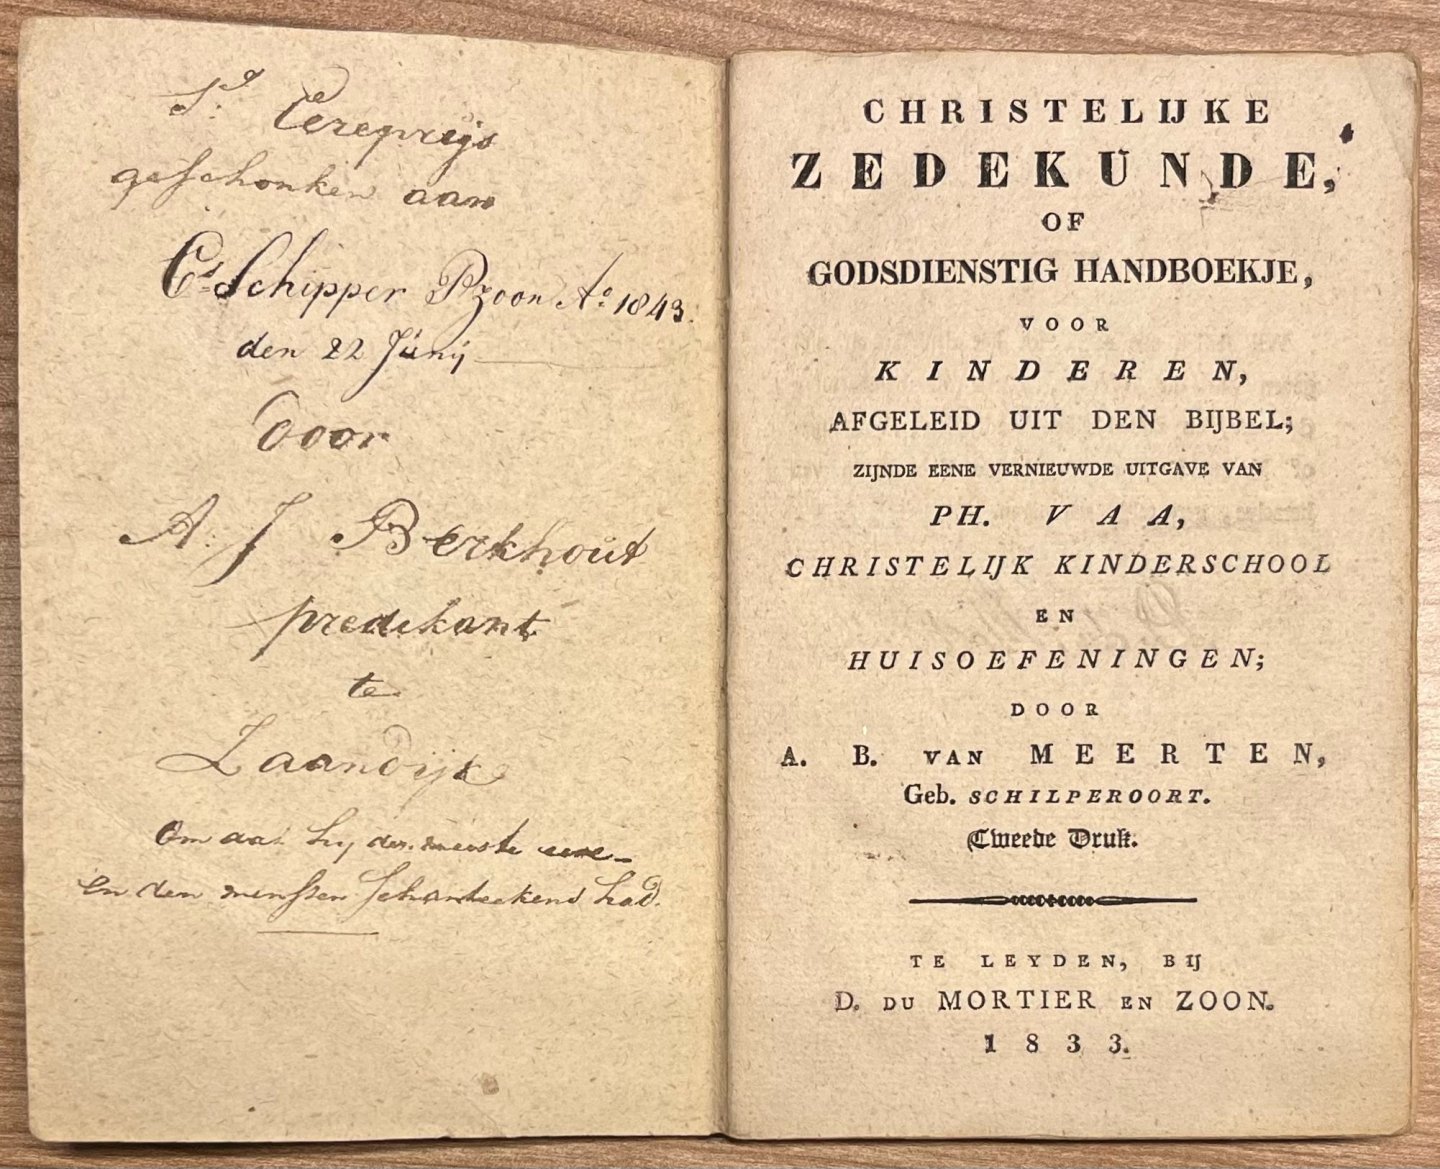 Eereprijs
geschonken aan
Cs Schipper Pzoon Ao 1843.
den 22 Junij
door
A: J Berkhout
predikant
te
Zaandijk
Om dat hij de meeste
en den menssen had.
CHRISTELIJKE
ZEDEKUNDE,
OF
GODSDIENSTIG HANDBOEKJE,
VOOR
KINDEREN,
AFGELEID UIT DEN BIJBEL;
ZIJNDE EENE VERNIEUWDE UITGAVE VAN
PH. VAA,
CHRISTELIJK KINDERSCHOOL
EN
HUISOEFENINGEN;
DOOR
A. B. VAN MEERTEN,
Geb. SCHILPEROORT.
Tweede Druk.
TE LEYDEN, BIJ
D. DU MORTIER EN ZOON.
1833.